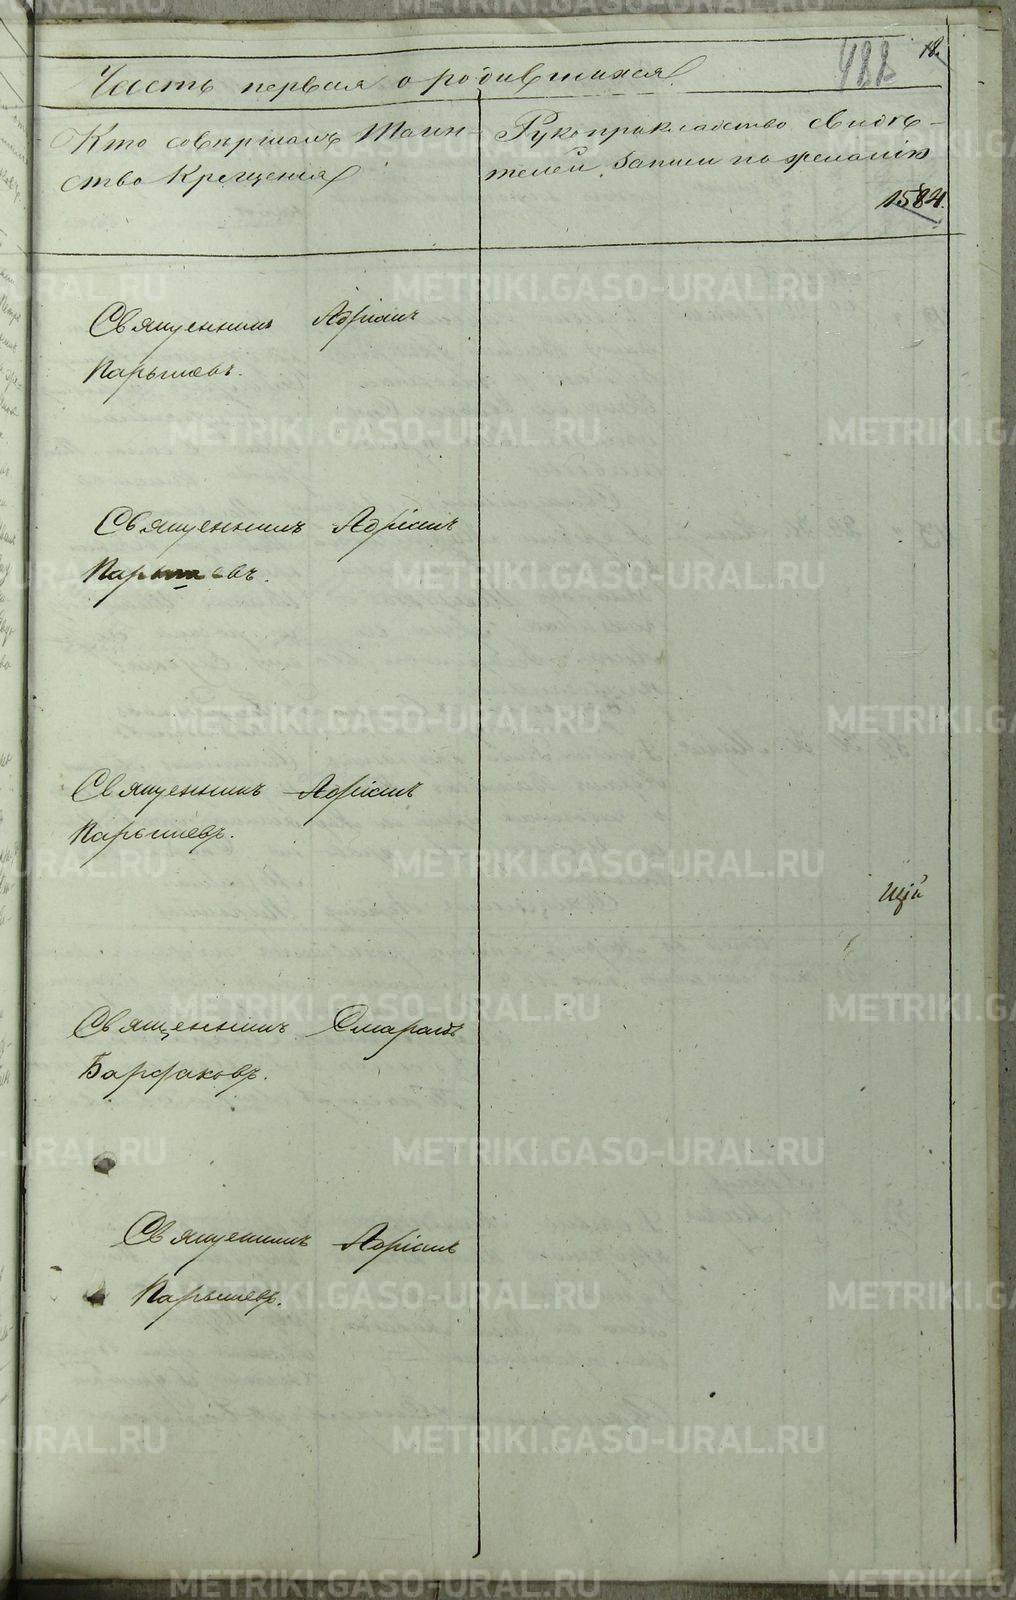 488 18.
Часть первая о родившихся
Кто совершалъ Таин-
ство Крещенія
Рукоприкладство свидѣ-
телей записи по желанію
1584.
Священникъ Адріанъ
Парышевъ.
Священникъ Адріанъ
Парышевъ.
Священникъ Адріанъ
Парышевъ.
щій
Священникъ
Священникъ Адріанъ
Парышевъ.
METRIKI.GASO-URAL.RU